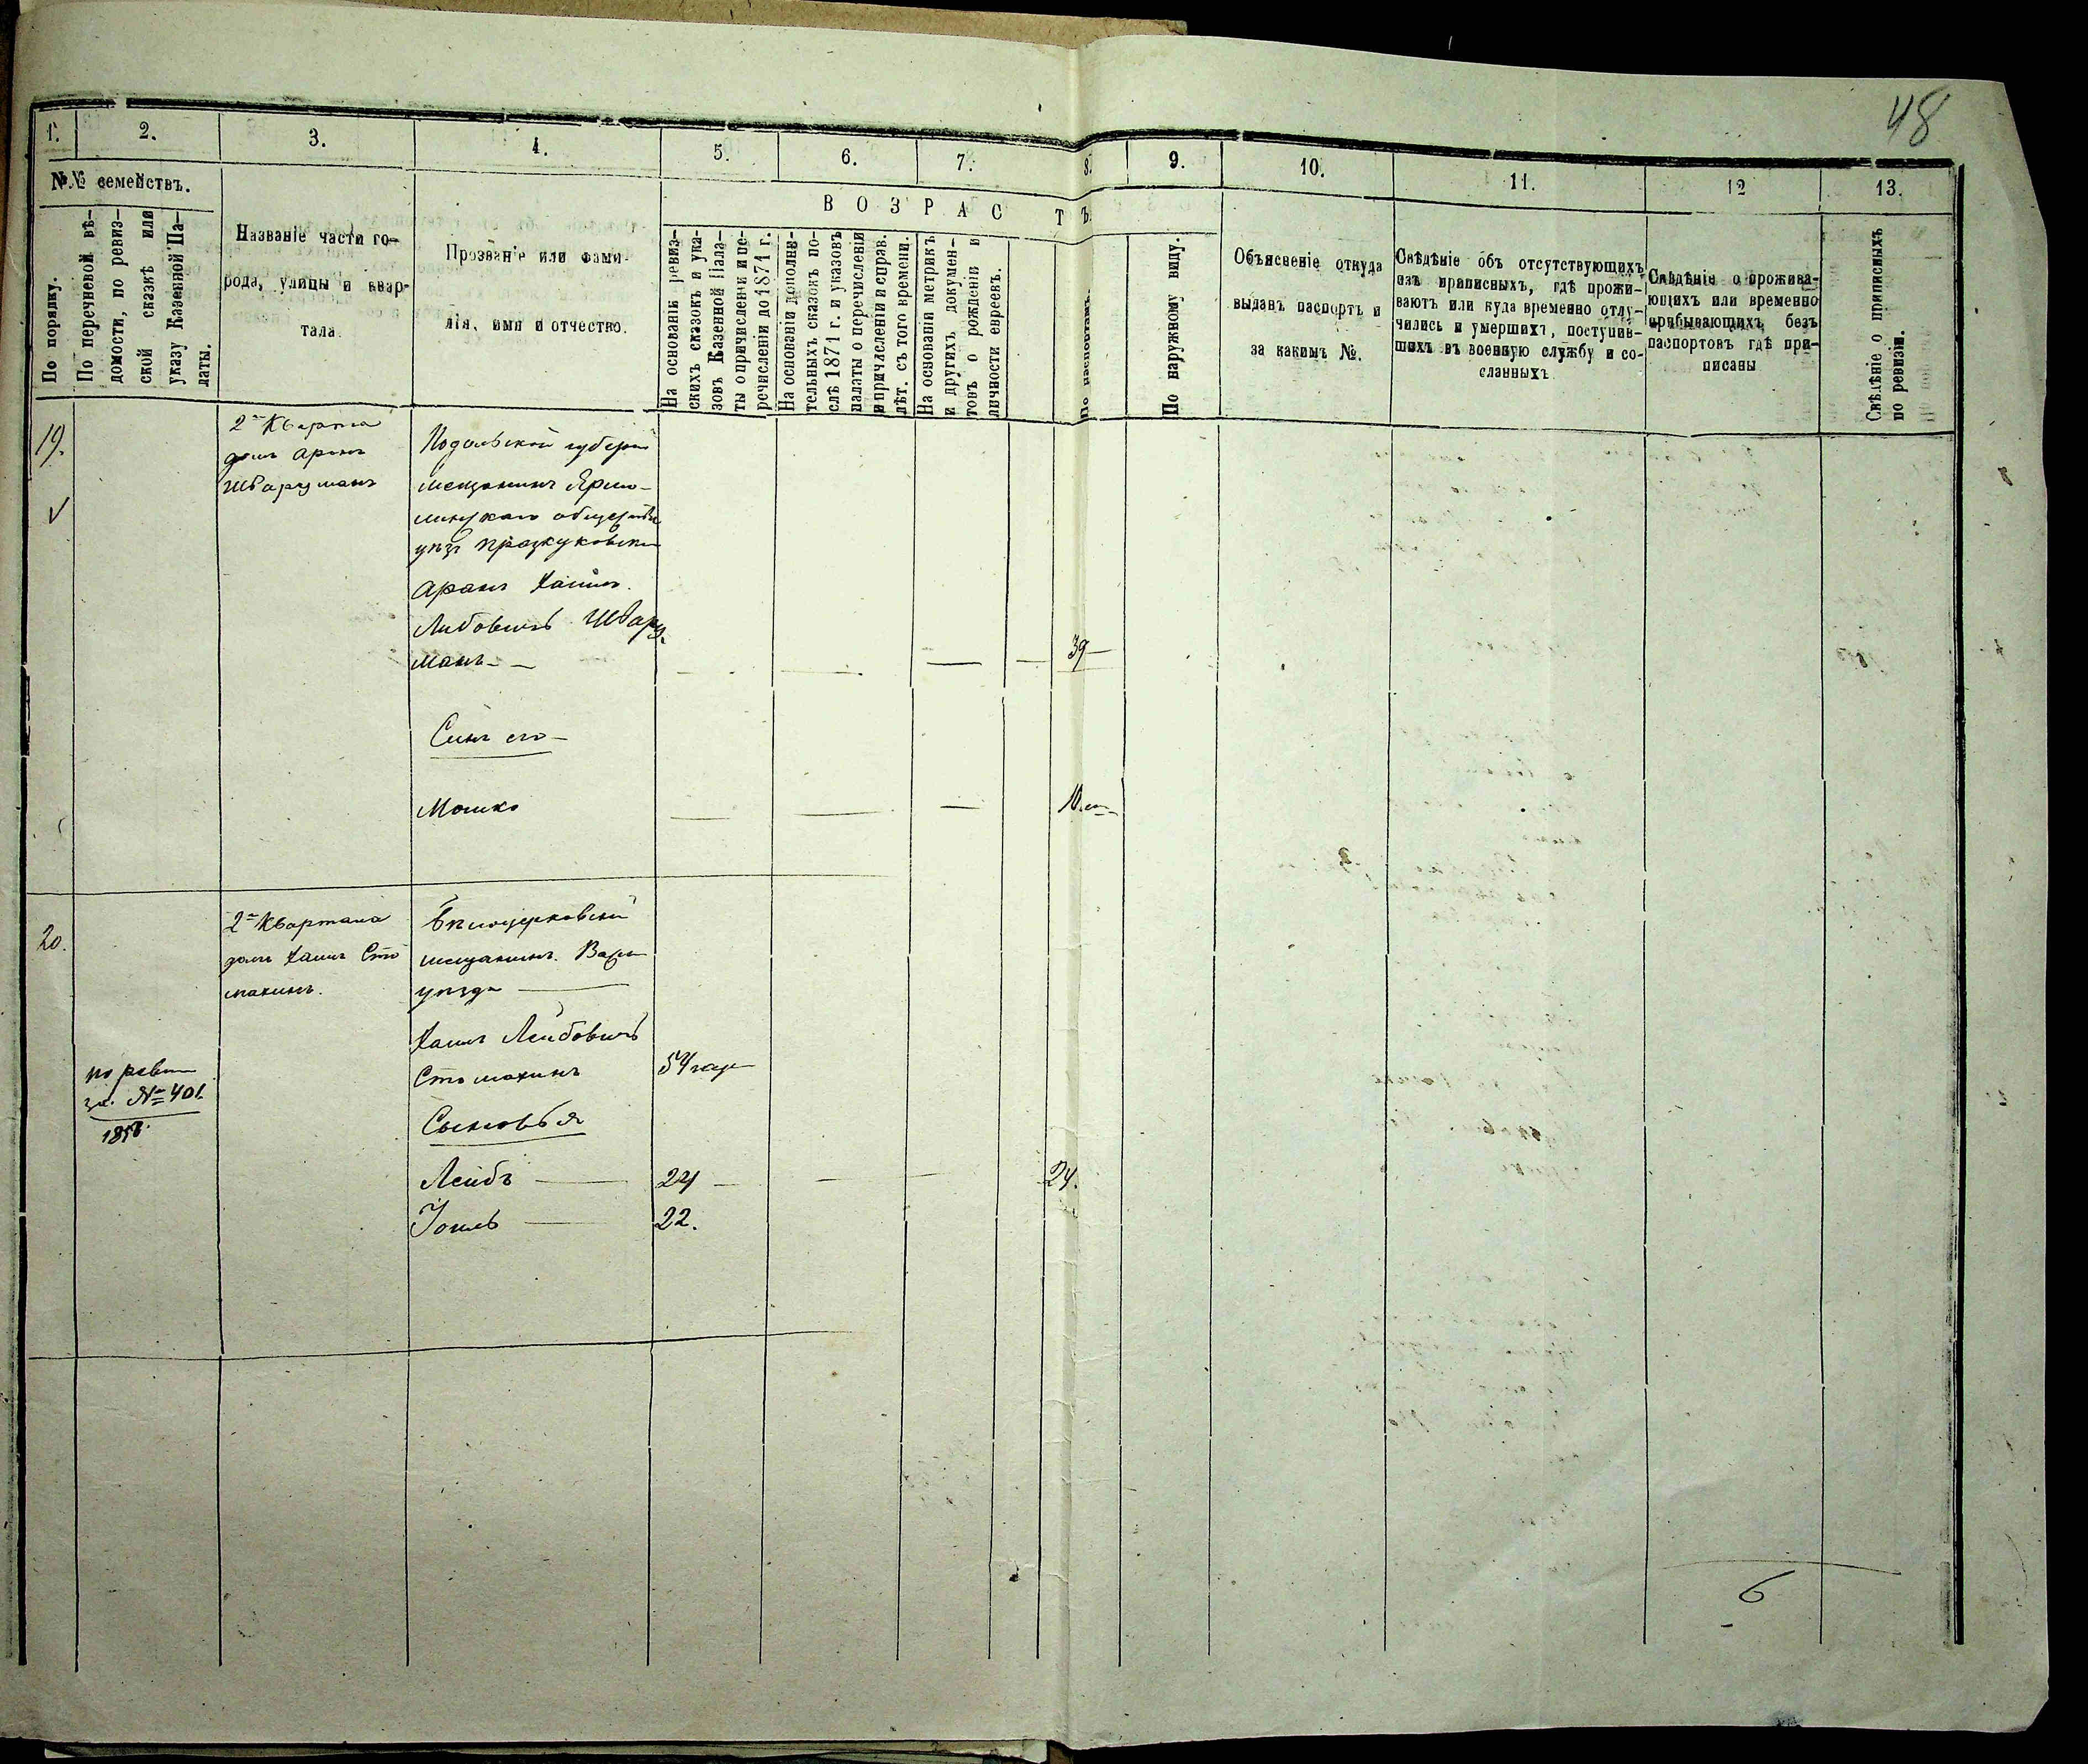 48
1.
2.
3.
4.
5.
6.
7.
8.
9.
10.
11.
12
13.
№.№ семействъ.
По порядку.
По перечневой вѣ-
домости, по ревиз-
ской сказкѣ или
указу Казенной Па-
латы.
Названіе части го-
рода, улицы и квар-
тала.
Прозваніе или фами-
лія, имя и отчество.
ВОЗРАСТЪ.
На основаніи ревиз-
скихъ сказокъ и ука-
зовъ Казенной Пала-
ты о причисленіи и пе-
речисленіи до 1871 г.
На основаніи дополни-
тельныхъ сказокъ по-
слѣ 1871 г. и указовъ
палаты о перечисленіи
и причисленіи и справ.
лѣт. съ того времени.
На основаніи метрикъ
и другихъ докумен-
товъ о рожденіи и
личности евреевъ.
По паспортамъ.
По наружному виду.
Объясненіе откуда
выданъ паспортъ и
за какимъ №.
Свѣдѣніе объ отсутствующихъ
изъ приписныхъ, гдѣ прожи-
ваютъ или куда временно отлу-
чились и умершихъ, поступив-
шихъ въ военную службу и со-
сланныхъ.
Свѣдѣніе о прожива-
ющихъ или временно
прибывающихъ безъ
паспортовъ гдѣ при-
писаны
Свѣдѣніе о приписныхъ
по ревизіи.
19.
2го Кварта
домъ Аронъ
Шварцманъ
Подольской губерн
мещанинъ Ярмо-
линцкаго общества
уѣзд Проскуковски
Аронъ Хаимъ
Либовичъ Шварц-
манъ — —
39 —
Синъ его —
Мошко
20.
2го Квартала
домъ Хаимъ Сто
махинъ.
Бѣлоцерковскій
мещанинъ. Васи
уѣзда —
Хаимъ Лейбовичъ
Стомахинъ
54 года
по реви
за. № 401
1858.
Сыновья
Лейбъ — 24 — 24.
Іоиль — 22.
6